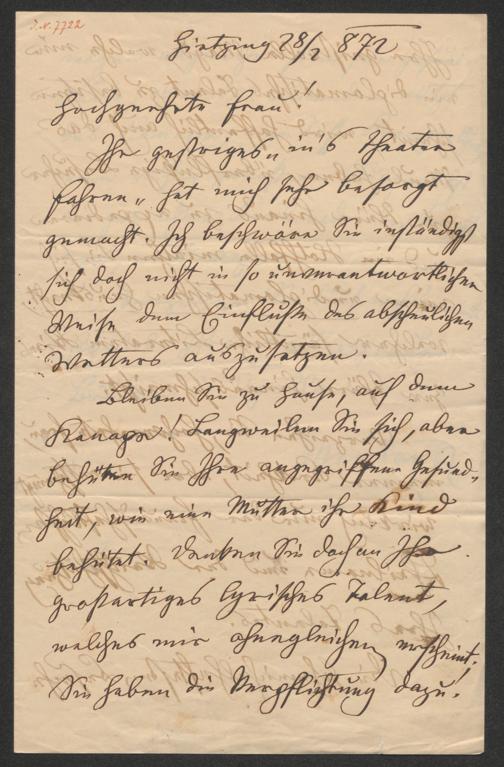 J.N. 7722
Hietzing 28/2 872
Hochgeehrte Frau!
Ihr gestriges „in's Theater
fahren„ hat mich sehr besorgt
gemacht. Ich beschwöre Sie inständigst
sich doch nicht in so unverantwortlicher
Weise dem Einfluße des abscheulichen
Wetters auszusetzen.
Bleiben Sie zu Hause, auf dem
Kanape! Langweilen Sie sich, aber
behüten Sie Ihre angegriffene Gesund-
heit, wie eine Mutter ihr Kind
behütet. Denken Sie doch an Ihr
großartiges lyrisches Talent,
welches mir ohnegleichen erscheint;
Sie haben die Verpflichtung dazu.